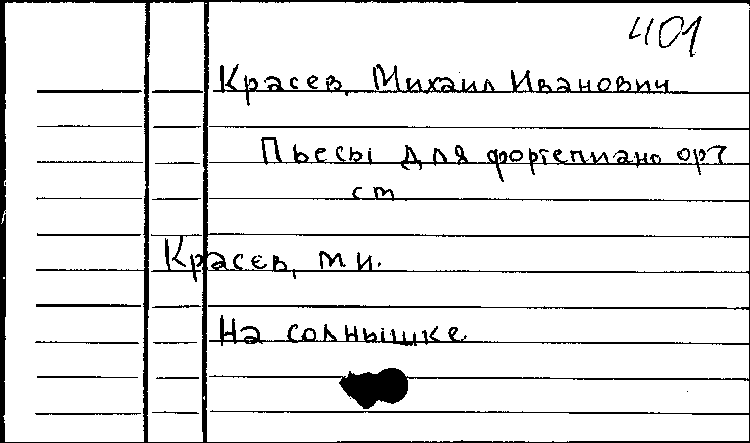 401
Красев, Михаил Иванович
Пьесы для фортепиано орг
ст
Красев, М.И.
На солнышке.